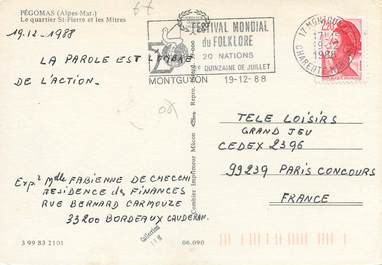 PÉGOMAS (Alpes-Mar.)
Le quartier St-Pierre et les Mitres
19.12-1988
LA PAROLE EST
DE L'ACTION.
FESTIVAL MONDIAL
du FOLKLORE
20 NATIONS
2e QUINZAINE DE JUILLET
MONTGUYON 19-12-88
17 MONTGUYON
1988
CHARENTE
TELE LOISIRS
GRAND JEU
CEDEX 2396
99239 PARIS CONCOURS
FRANCE
Exp: Mdle FABIENNE DE CHECCHI
RESIDENCE des FINANCES
RUE BERNARD CARMOUZE
33200 BORDEAUX CAUDERAN
Combier Imprimeur Mâcon
Collection
3 99 83 2101
06.090